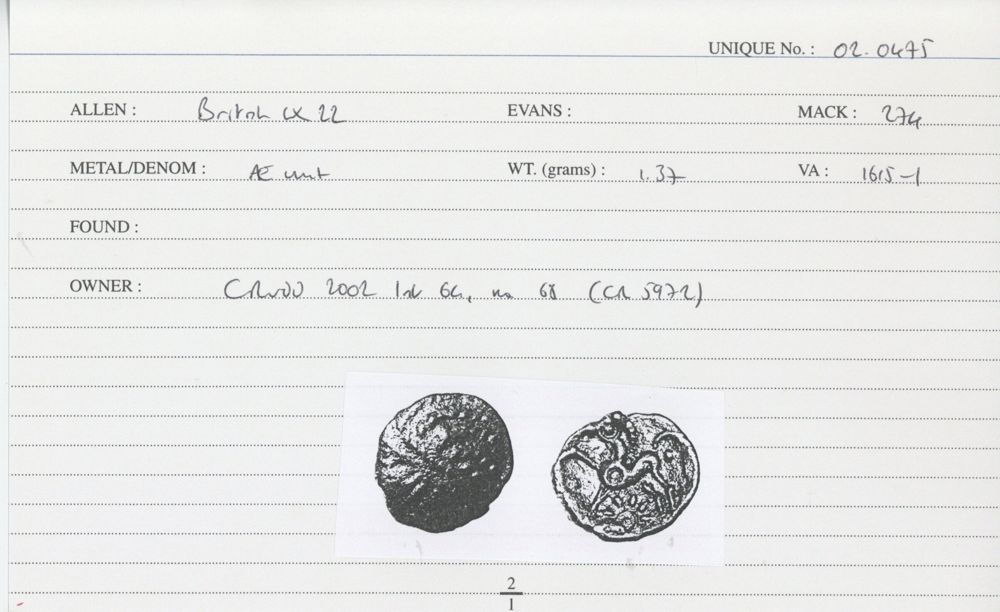 UNIQUE No. : 02.0475
ALLEN : British LX 22 EVANS : MACK : 274
METAL/DENOM : Æ unit WT. (grams) : 1.37 VA : 1615-1
FOUND :
OWNER : 2002 64, no 68 (CR 5972)
2
1